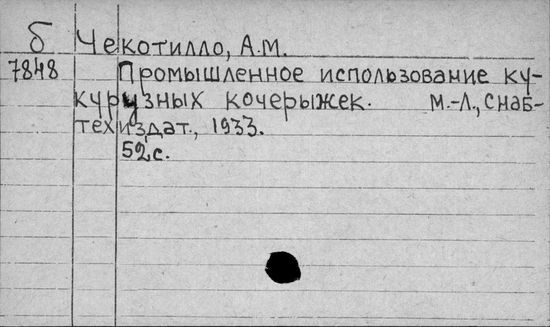 б Чекотилло, А.М.
7848 Промышленное использование ку-
курузных кочерыжек. М.-Л., Снаб-
техиздат., 1933.
52 с.